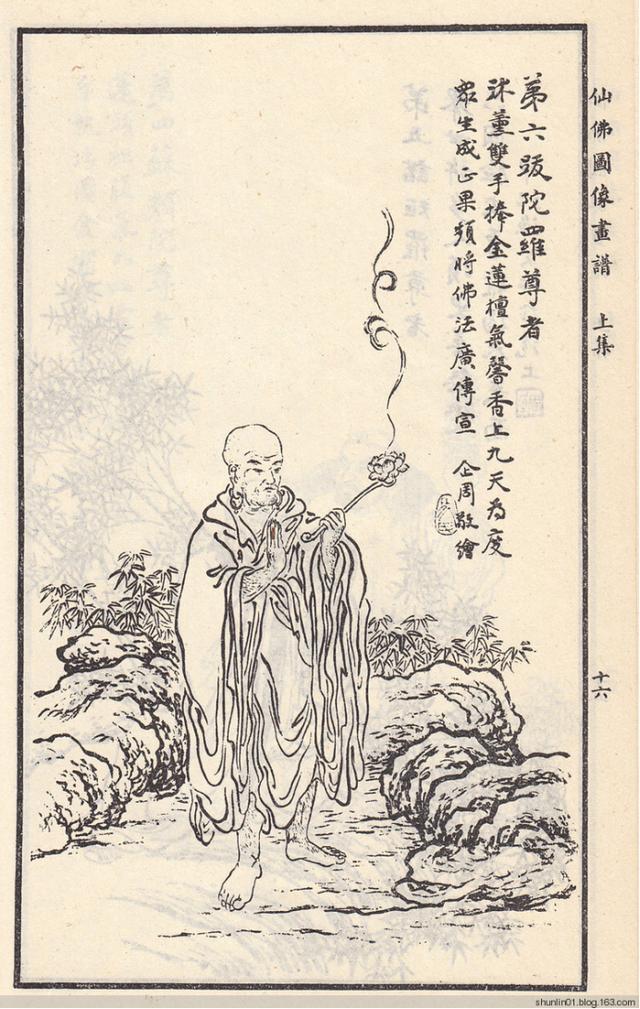 仙佛圖像畫譜 上集
十六
第六跋陀羅尊者
沐薰雙手捧金蓮檀氣馨香上九天為度
眾生成正果頻將佛法廣傳宣 企周敬繪
shunlin01.blog.163.com